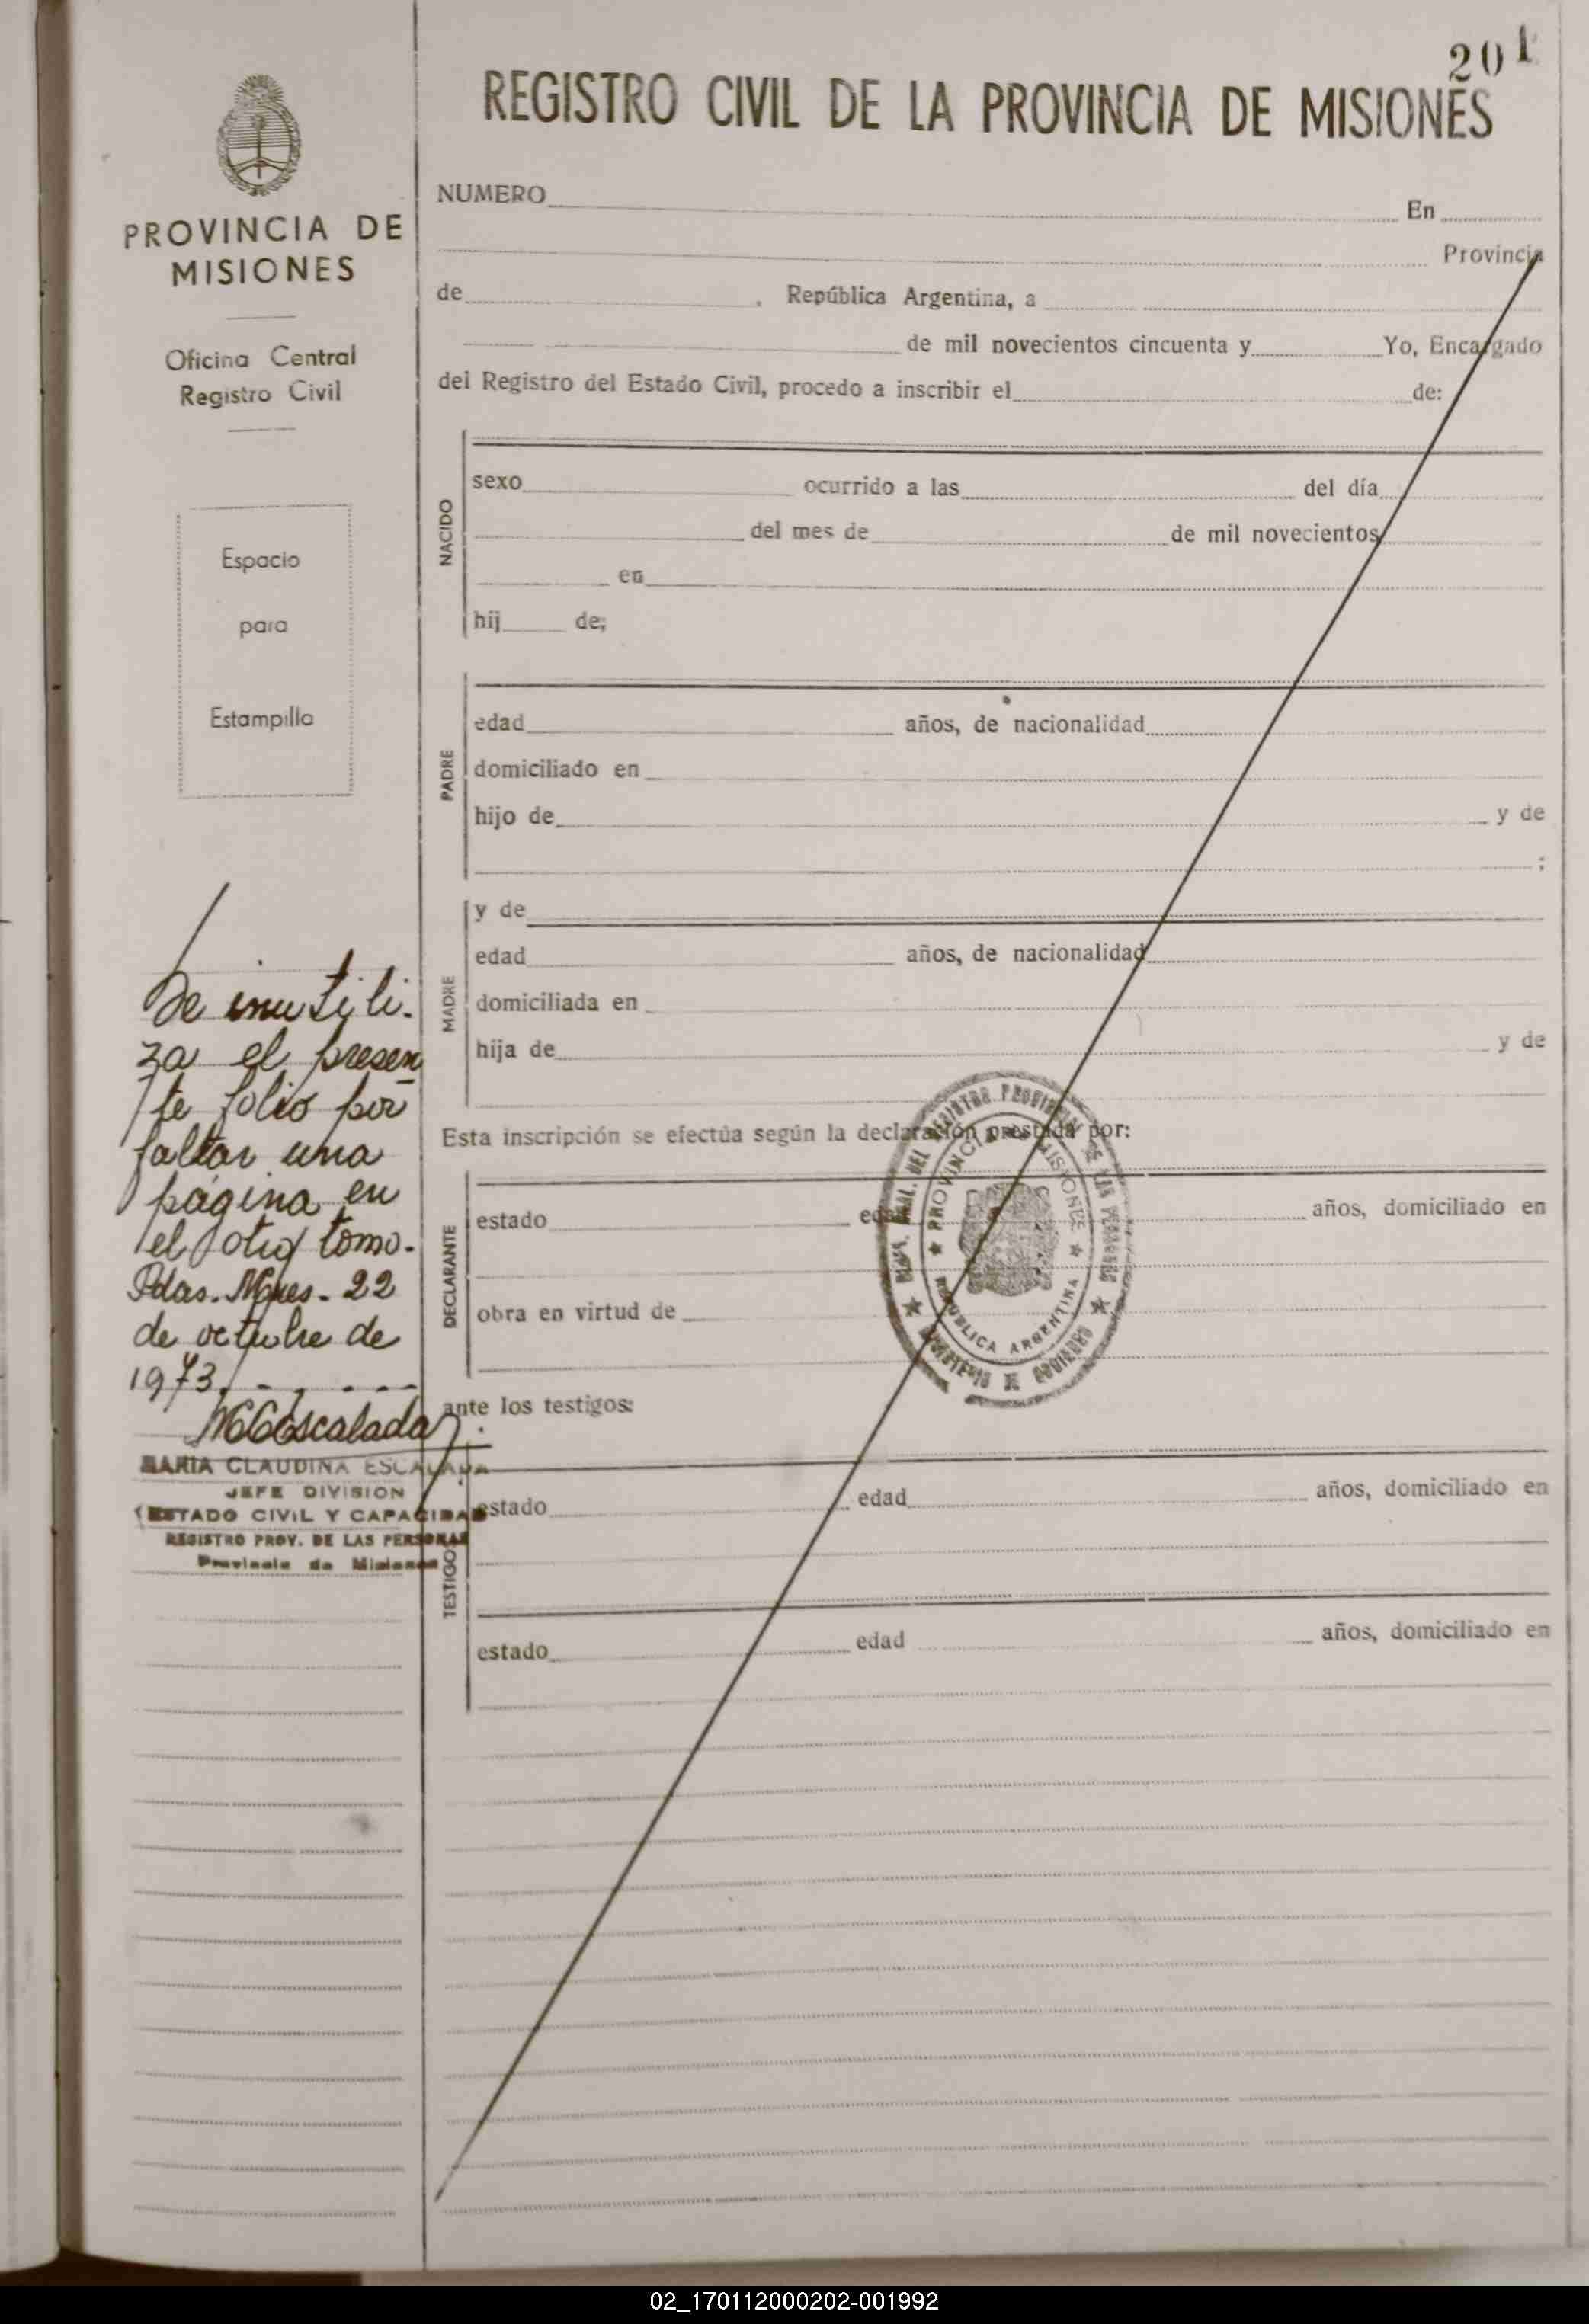 201
REGISTRO CIVIL DE LA PROVINCIA DE MISIONES
PROVINCIA DE
MISIONES
Oficina Central
Registro Civil
Espacio
para
Estampilla
Se inutili-
za el presen
te folio por
faltar una
página en
el otro tomo.
Pdas. Mnes. 22
de octubre de
1973.
MCEscalada
MARIA CLAUDINA ESCALADA
JEFE DIVISION
ESTADO CIVIL Y CAPACIDAD
REGISTRO PROV. DE LAS PERSONAS
Provincia de Misiones
NUMERO En
Provincia
de , República Argentina, a
de mil novecientos cincuenta y Yo, Encargado
del Registro del Estado Civil, procedo a inscribir el de:
NACIDO
sexo ocurrido a las del día
del mes de de mil novecientos
en
hij de;
PADRE
edad años, de nacionalidad
domiciliado en
hijo de y de
;
MADRE
y de
edad años, de nacionalidad
domiciliada en
hija de y de
Esta inscripción se efectúa según la declaración prestada por:
DECLARANTE
estado edad años, domiciliado en
obra en virtud de
PROVINCIA DE MISIONES
REPUBLICA ARGENTINA
ante los testigos:
TESTIGO
estado edad años, domiciliado en
estado edad años, domiciliado en
02_170112000202-001992